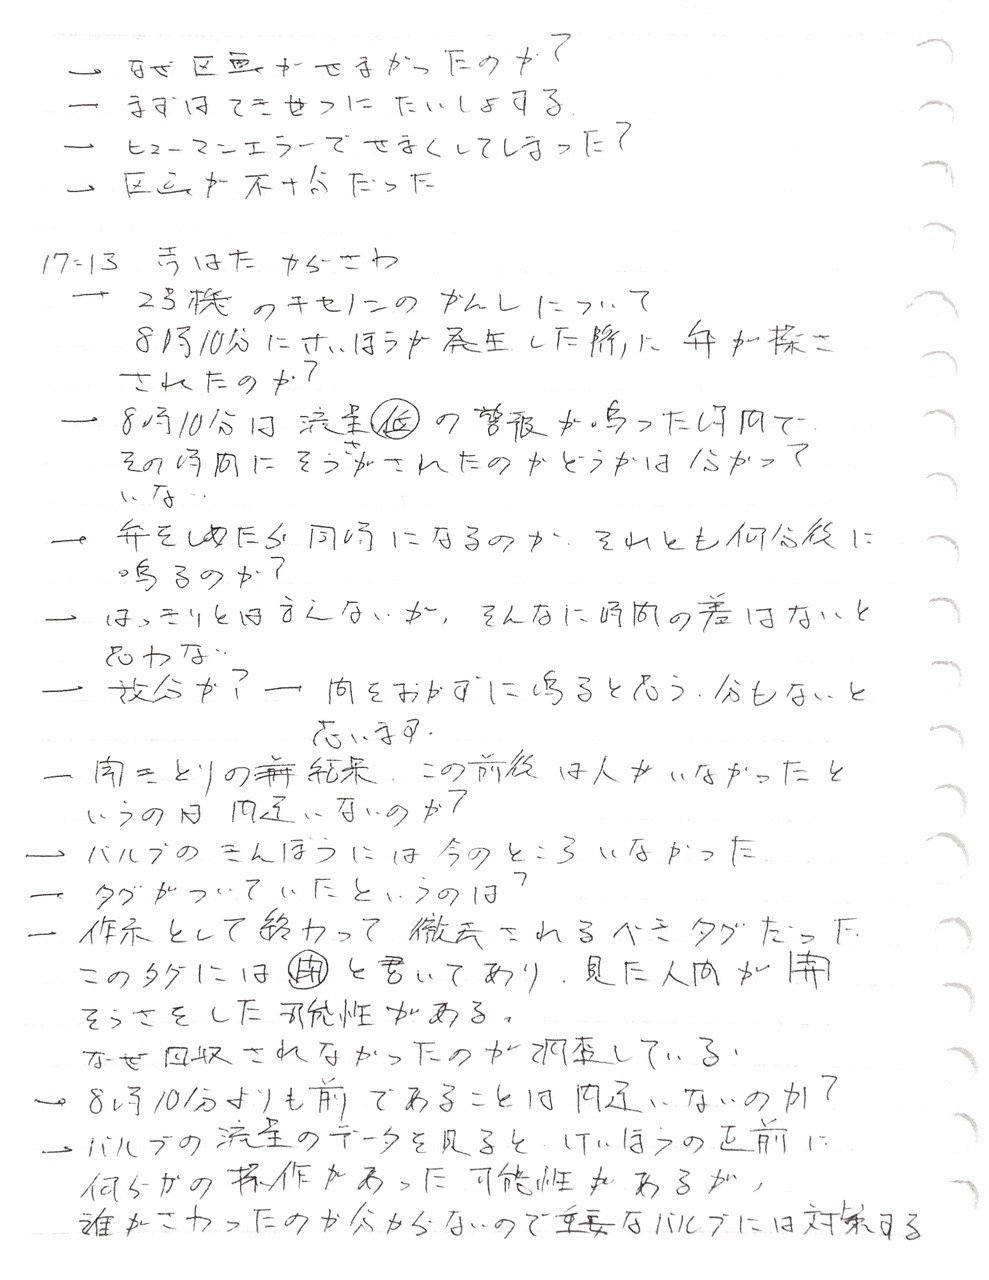 → なぜ区画がせまかったのか?
→ まずはてきせつにたいしょする
→ ヒューマンエラーでせまくしてしまった?
→ 区画が不十分だった
17:13
→ 2号機のキセノンのかんしについて
8時10分にけいほうが発生した際に弁が操さ
されたのか?
→ 8時10分は流量低の警報が鳴った時間で
その時間にそうさがされたのかどうかは分かって
いない
→ 弁をしめたら同時になるのか、それとも何分後に
鳴るのか?
→ はっきりとは言えないが、そんなに時間の差はないと
思わない
→ 数分か? → 間をおかずに鳴ると思う.分もないと
思います.
→ 聞きとりの結果、この前後は人がいなかったと
いうのは間違いないのか?
→ バルブのきんぼうには今のところいなかった
→ タグがついていたというのは?
→ 作業として終わって撤去されるべきタグだった
このタグには開と書いてあり、見た人間が開
そうさをした可能性がある。
なぜ回収されなかったのか調査している.
→ 8時10分よりも前であることは間違いないのか?
→ バルブの流量のデータを見るとけいほうの直前に
何らかの操作があった可能性があるが,
誰がさわったのか分からないので重要なバルブには対策する